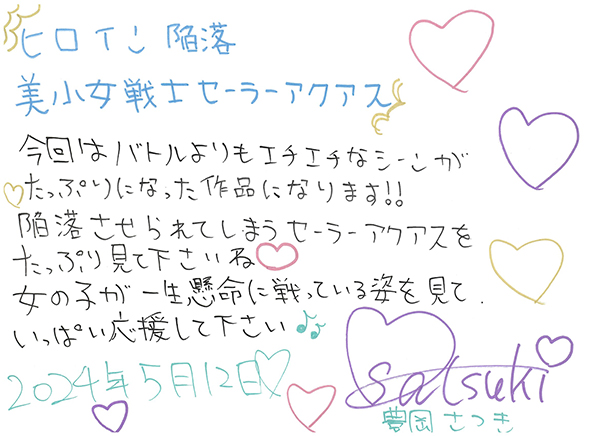 ヒロイン陥落
美少女戦士セーラーアクアス
今回はバトルよりもエチエチなシーンが
たっぷりになった作品になります!!
陥落させられてしまうセーラーアクアスを
たっぷり見て下さいね
女の子が一生懸命に戦っている姿を見て、
いっぱい応援して下さい♪♪
2024年5月12日
Satsuki
豊岡さつき